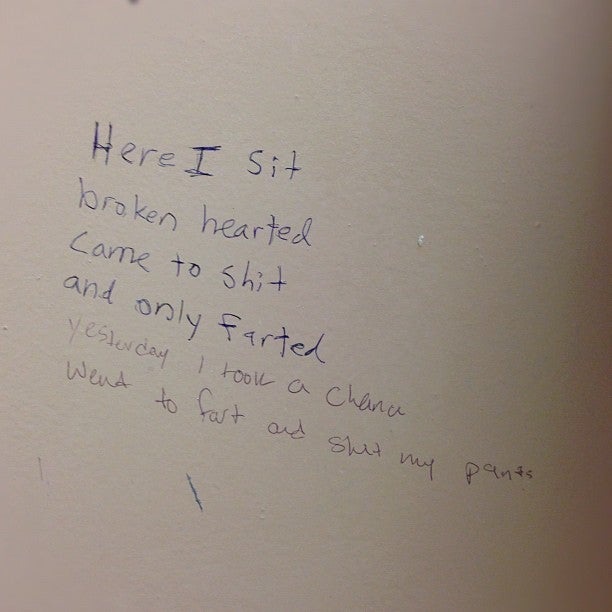 Here I sit
broken hearted
Came to shit
and only farted
yesterday I took a chance
Went to fart and shit my pants